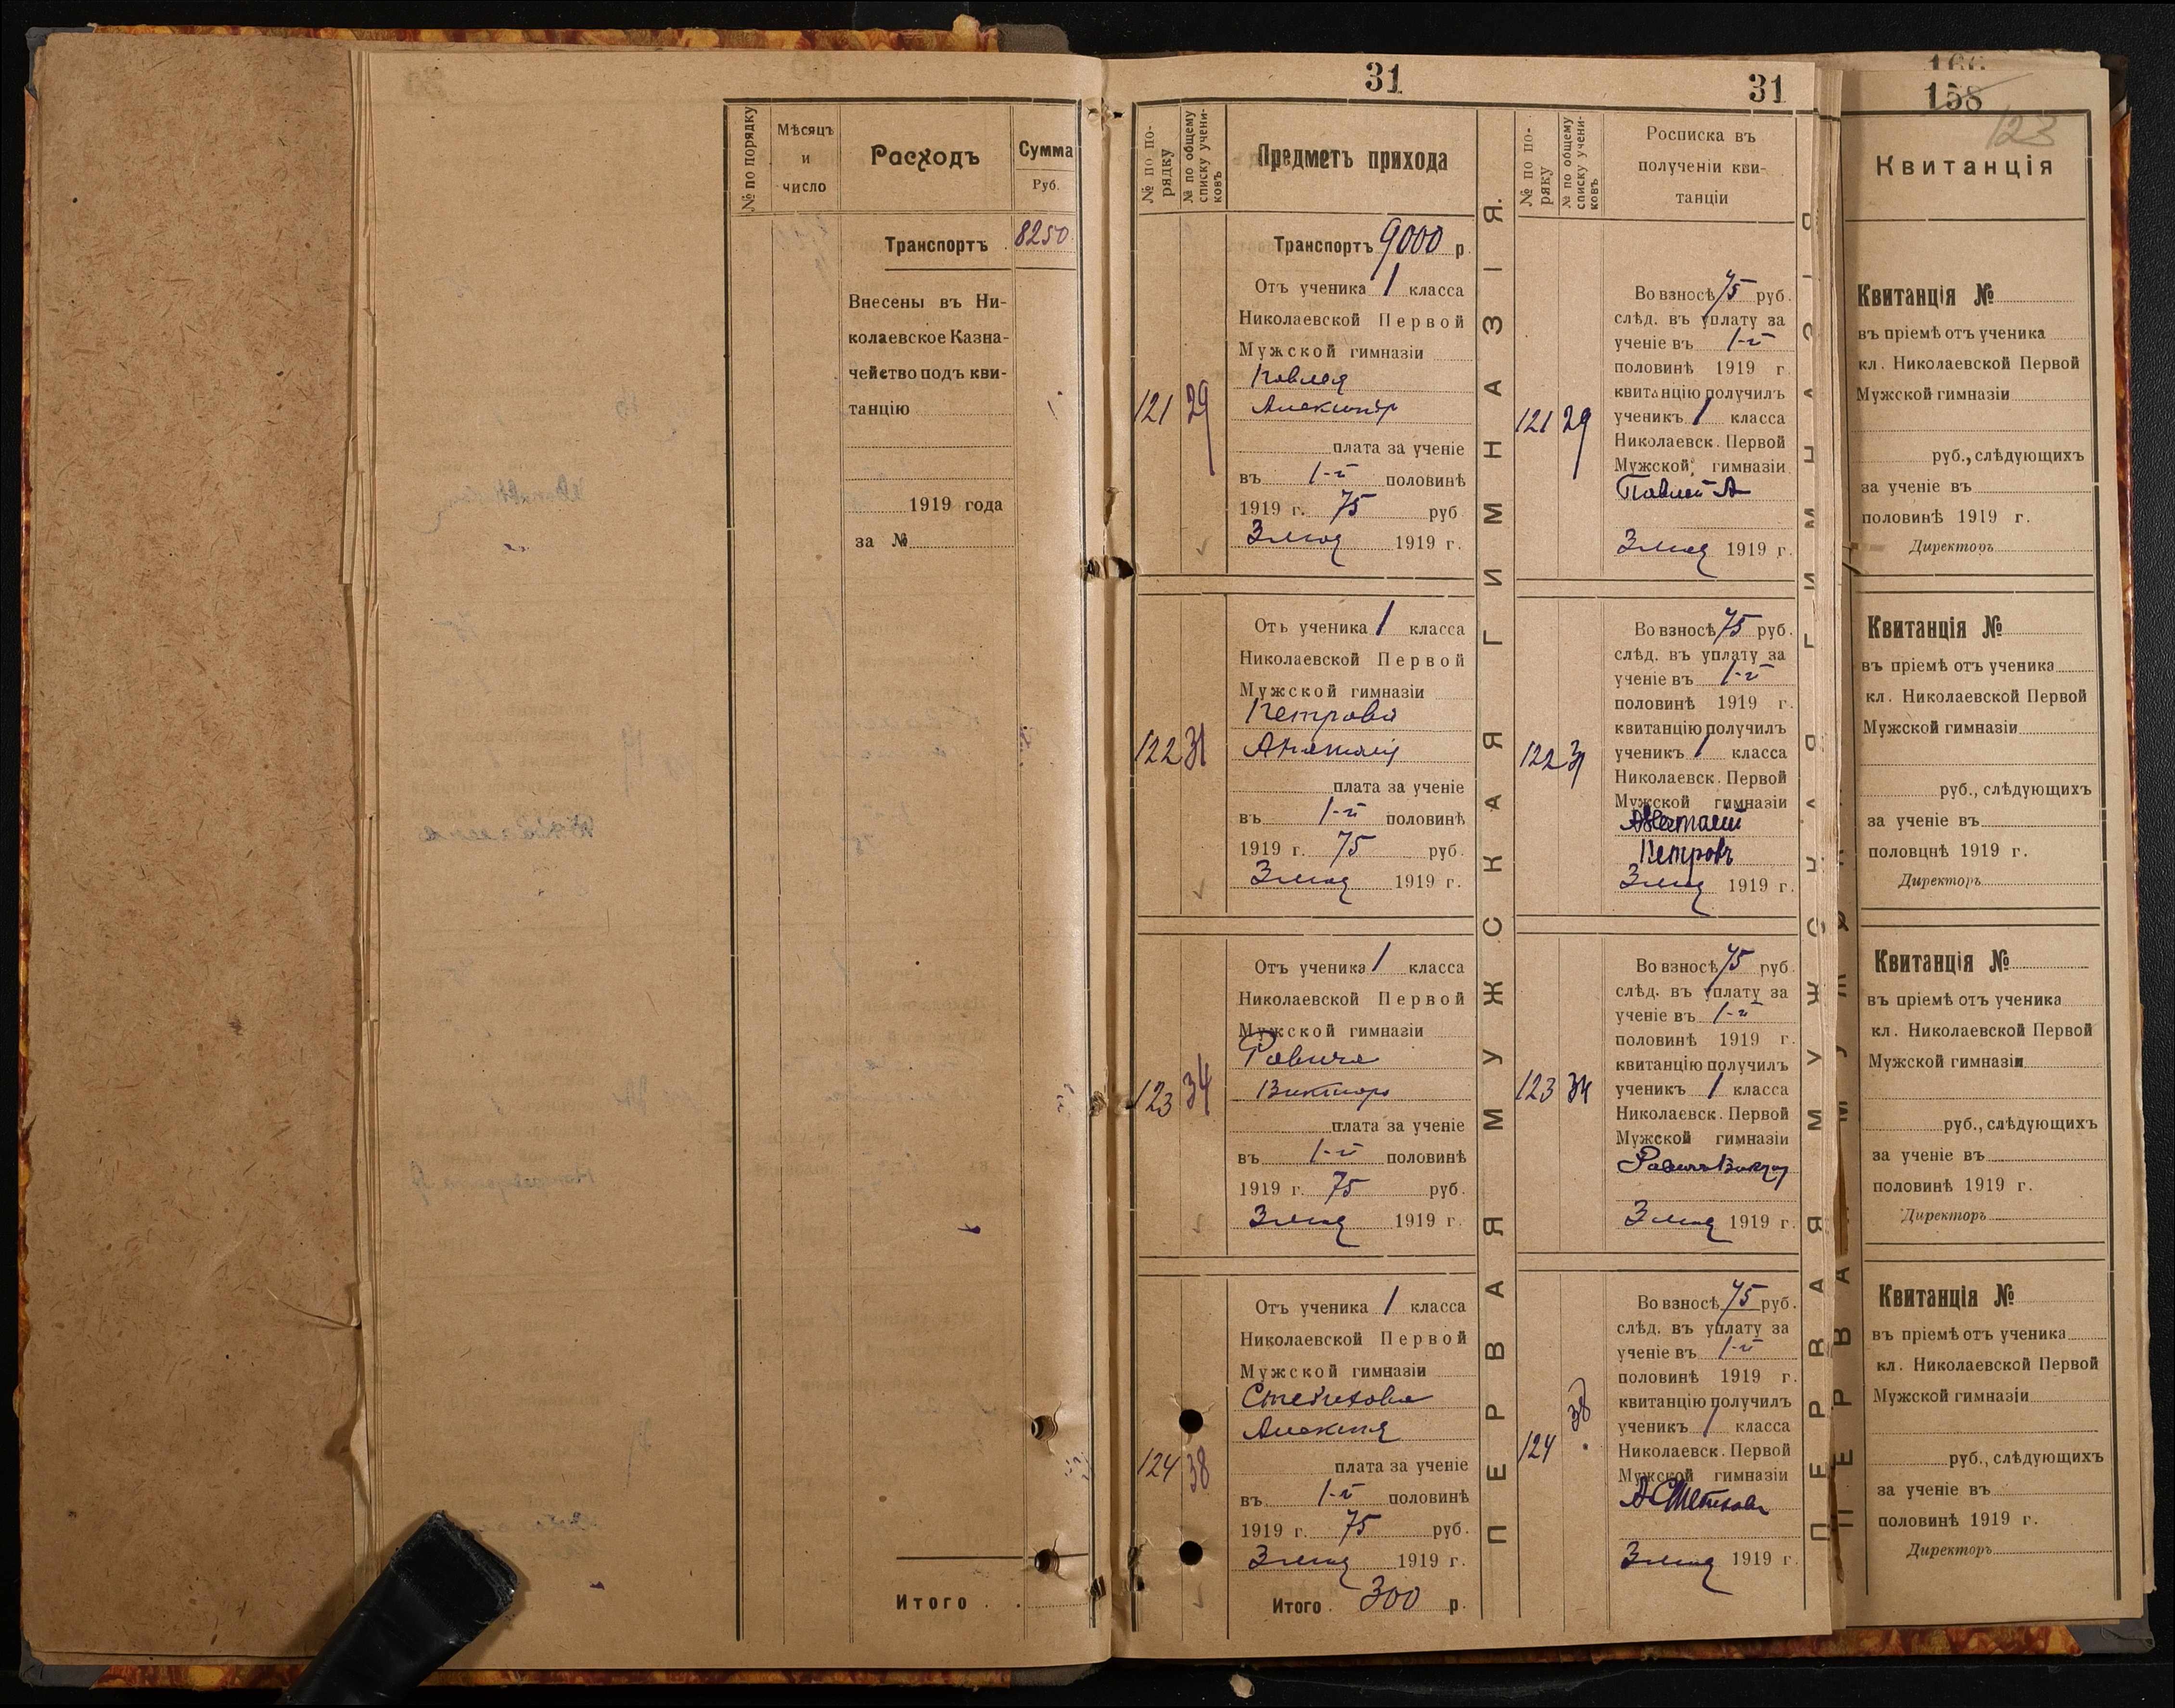 № по порядку
Мѣсяцъ
и
число
Расходъ
Сумма
Руб.
Транспортъ . 8250
Внесены въ Ни-
колаевское Казна-
чейство подъ кви-
танцію
1919 года
за №
Итого . .
31
№ по по-
рядку
№ по общему
списку учени-
ковъ
Предметъ прихода
Транспортъ 9000 р.
121 29
Отъ ученика 1 класса
Николаевской Первой
Мужской гимназіи
плата за ученіе
въ 1-й половинѣ
1919 г. 75 руб
3 мая 1919 г.
122 31
Отъ ученика 1 класса
Николаевской Первой
Мужской гимназіи
Петрова
Анатолія
плата за ученіе
въ 1-й половинѣ
1919 г. 75 руб.
3 мая 1919 г.
123 34
Отъ ученика 1 класса
Николаевской Первой
Мужской гимназіи
Равича
Виктора
плата за ученіе
въ 1-й половинѣ
1919 г. 75 руб.
3 мая 1919 г.
124 38
Отъ ученика 1 класса
Николаевской Первой
Мужской гимназіи
Алексѣя
плата за ученіе
въ 1-й половинѣ
1919 г. 75 руб.
3 мая 1919 г.
Итого . 300 р.
ПЕРВАЯ МУЖСКАЯ ГИМНАЗІЯ.
31
№ по по-
ряку
№ по общему
списку учени-
ковъ
Росписка въ
полученіи кви-
танціи
121 29
Во взносѣ 75 руб.
слѣд. въ уплату за
ученіе въ 1-й
половинѣ 1919 г.
квитанцію получилъ
ученикъ 1 класса
Николаевск. Первой
Мужской гимназіи
3 мая 1919 г.
122 31
Во взносѣ 75 руб.
слѣд. въ уплату за
ученіе въ 1-й
половинѣ 1919 г.
квитанцію получилъ
ученикъ 1 класса
Николаевск. Первой
Мужской гимназіи
Анатолій
Петровъ
3 мая 1919 г.
123 34
Во взносѣ 75 руб.
слѣд. въ уплату за
ученіе въ 1-й
половинѣ 1919 г.
квитанцію получилъ
ученикъ 1 класса
Николаевск. Первой
Мужской гимназіи
Равичъ Виктор
3 мая 1919 г.
124 38
Во взносѣ 75 руб.
слѣд. въ уплату за
ученіе въ 1-й
половинѣ 1919 г.
квитанцію получилъ
ученикъ 1 класса
Николаевск. Первой
Мужской гимназіи
3 мая 1919 г.
ПЕРВАЯ МУЖСКАЯ ГИМНАЗІЯ
166
158
123
Квитанція
Квитанція №
въ пріемѣ отъ ученика
кл. Николаевской Первой
Мужской гимназіи
руб., слѣдующихъ
за ученіе въ
половинѣ 1919 г.
Директоръ
Квитанція №
въ пріемѣ отъ ученика
кл. Николаевской Первой
Мужской гимназіи
руб., слѣдующихъ
за ученіе въ
половцнѣ 1919 г.
Директоръ
Квитанція №
въ пріемѣ отъ ученика
кл. Николаевской Первой
Мужской гимназіи
руб., слѣдующихъ
за ученіе въ
половинѣ 1919 г.
Директоръ
Квитанція №
въ пріемѣ отъ ученика
кл. Николаевской Первой
Мужской гимназіи
руб., слѣдующихъ
за ученіе въ
половинѣ 1919 г.
Директоръ